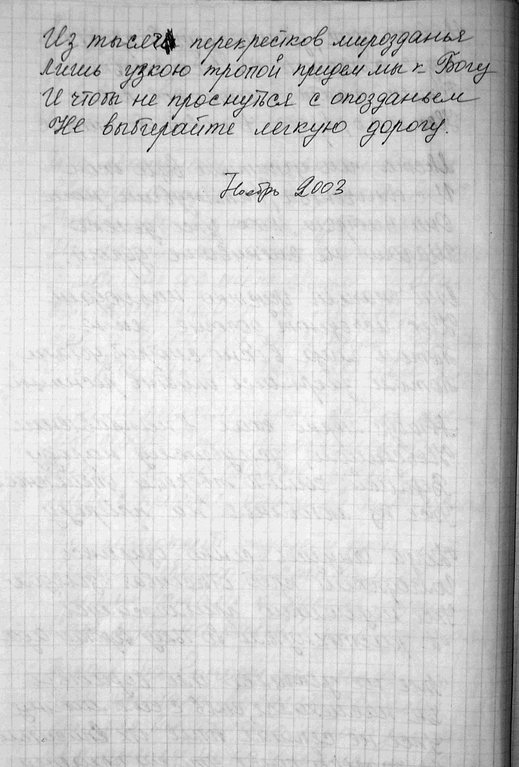 Из тысяч перекрестков мирозданья
Лишь узкою тропой придем мы к Богу
И чтобы не проснуться с опозданьем
Не выбирайте легкую дорогу.
Ноябрь 2003